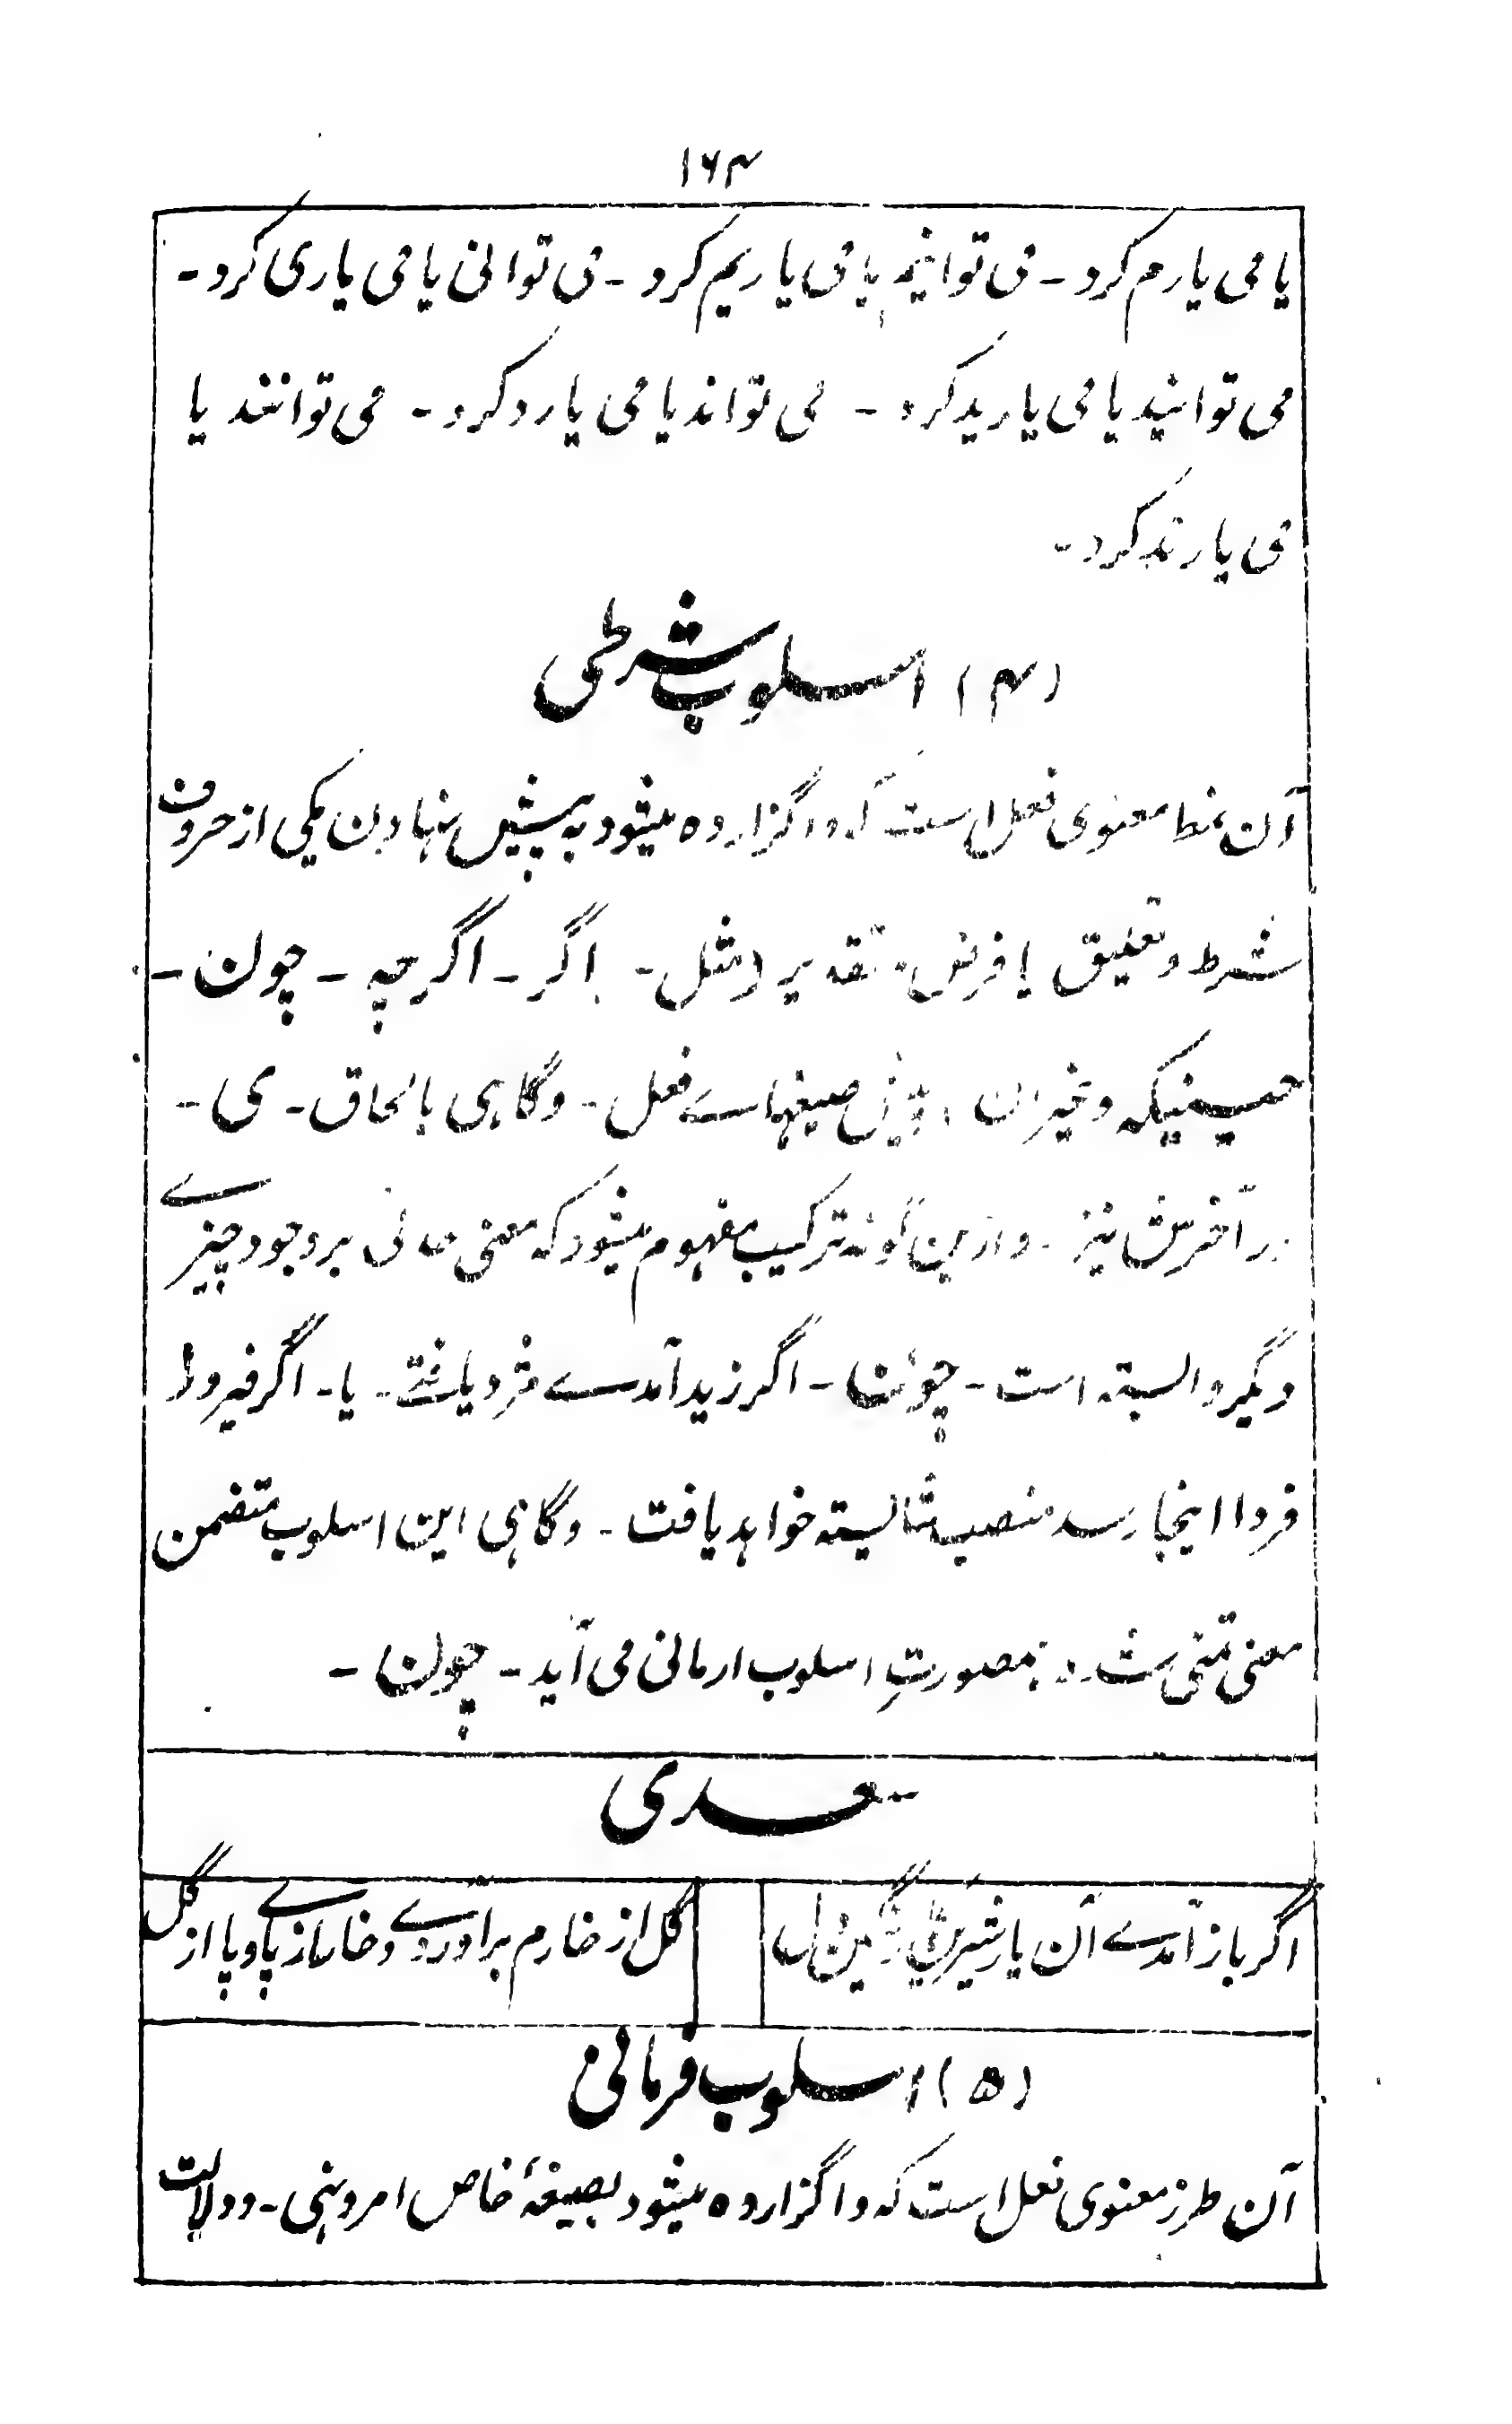 ۱۶۴
یا می یارم کرد - می توانیم یا می یاریم کرد - می توانی یا می یاری کرد -
می توانید یا می یارید کرد - می تواند یا می یارد کرد - می توانند یا
می یارند کرد -
(۴) اسلوب شرطی
آن نمط معنوی فعل است که واگزارده میشود به پیش نهادن یکی از حروف
شرط و تعلیق یا فرض و تقدیر (مثل - اگر - اگرچه - چون -
حینیکه و غیر آن صیغهاے فعل - و گاهی بالحاق - ی -
در آخرش نیز - و ازین گونه ترکیب مفهوم میشود که معنی حالی بر وجود چیزے
دیگر وابسته است - چون - اگر زید آمدے مزد یافتے - یا - اگر فیروز
فردا اینجا رسد منصب شایسته خواهد یافت - و گاهی این اسلوب متضمن
معنی تمنی بصورتِ اسلوب ارمانی می آید - چون -
سعدی
اگر باز آمدے آن یار شیرین سنگین دل
گل از خارم برآوردے و خار از پا و پا از گل
(۵) اسلوب فرمانی
آن طرز معنوی فعل است که واگزارده میشود بصیغهٔ خاص امر و نهی - و دلالت